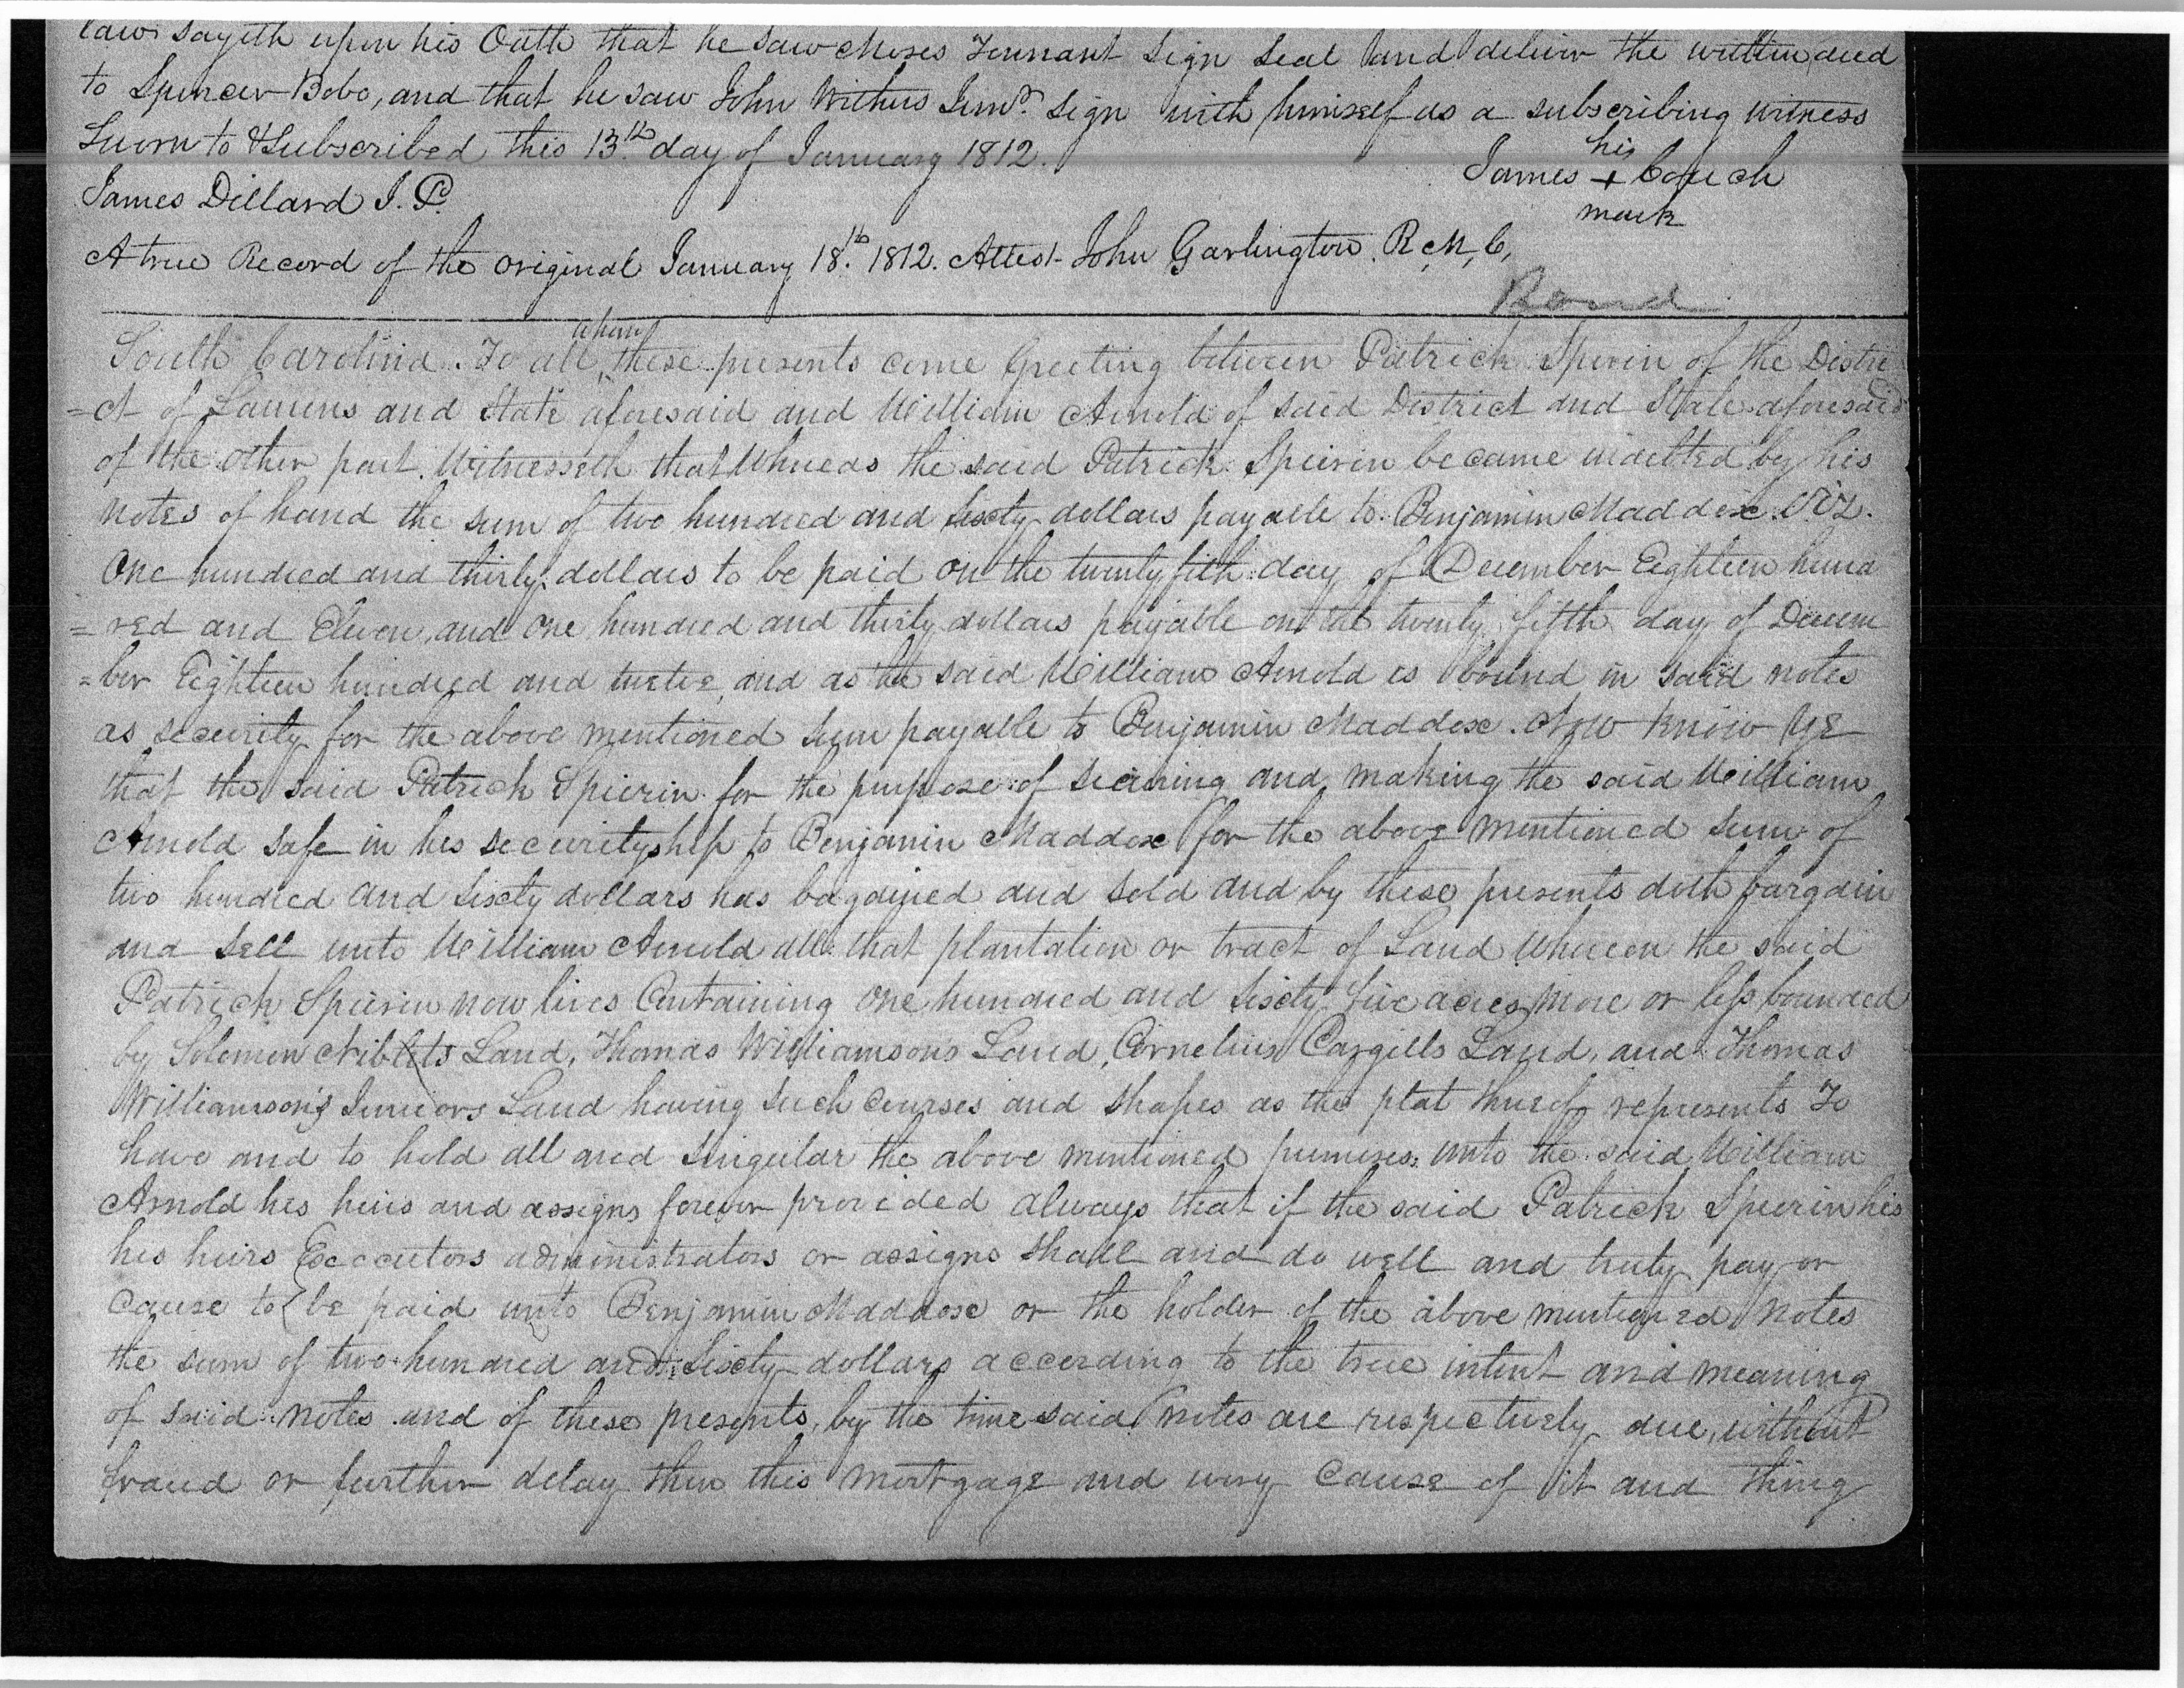 law sayeth upon his Oath that he saw Moses Tennant Sign Seal and deliver the written deed
to Spencer Bobo, and that he saw John Withers Junr. Sign with himself as a subscribing witness
Sworn to & Subscribed this 13th day of January 1812.
his
James + Couch
mark
James Dillard J. P.
A true Record of the original January 18th. 1812. Attest John Garlington. R, M, C,
Bond
South Carolina. To all whom these presents come Greeting between Patrick Spierin of the Distri
=ct of Laurens and State aforesaid and William Arnold of said District and State aforesaid
of the other part. Witnesseth that Whereas the said Patrick Spierin became indebted by his
notes of hand the sum of two hundred and sixty dollars payable to Benjamin Maddox. Viz.
One hundred and thirty dollars to be paid on the twenty fith day of December Eighteen hund
=red and Eleven, and One hundred and thirty dollars payable on the twenty fifth day of Decem
=ber Eighteen hundred and twelve, and as the said William Arnold is bound in said notes
as security for the above mentioned sum payable to Benjamin Maddox. Now know ye
that the said Patrick Spierin for the purpose of securing and making the said William
Arnold safe in his securityship to Benjamin Maddox for the above mentioned sum of
two hundred and sixty dollars has bagained and sold and by these presents doth bargain
and sell unto William Arnold all that plantation or tract of Land Whereon the said
Patrick Spierin now lives Containing one hundred and sixty five acres more or less bounded
by Solomon Niblets Land, Thomas Williamsons Land, Cornelius Cargills Land, and Thomas
Williamson's Juniors Land having such courses and shapes as the plat thereof represents To
have and to hold all and singular the above mentioned premises unto the said William
Arnold his heirs and assigns forever provided always that if the said Patrick Spierin his
his heirs Executors administrators or assigns shall and do well and truly pay or
Cause to be paid unto Benjamin Maddox or the holder of the above mentioned notes
the sum of two hundred and sixty dollars according to the true intent and meaning
of said notes and of these presents, by the time said notes are respectively due, without
fraud or further delay then this mortgage and every Cause of it and thing